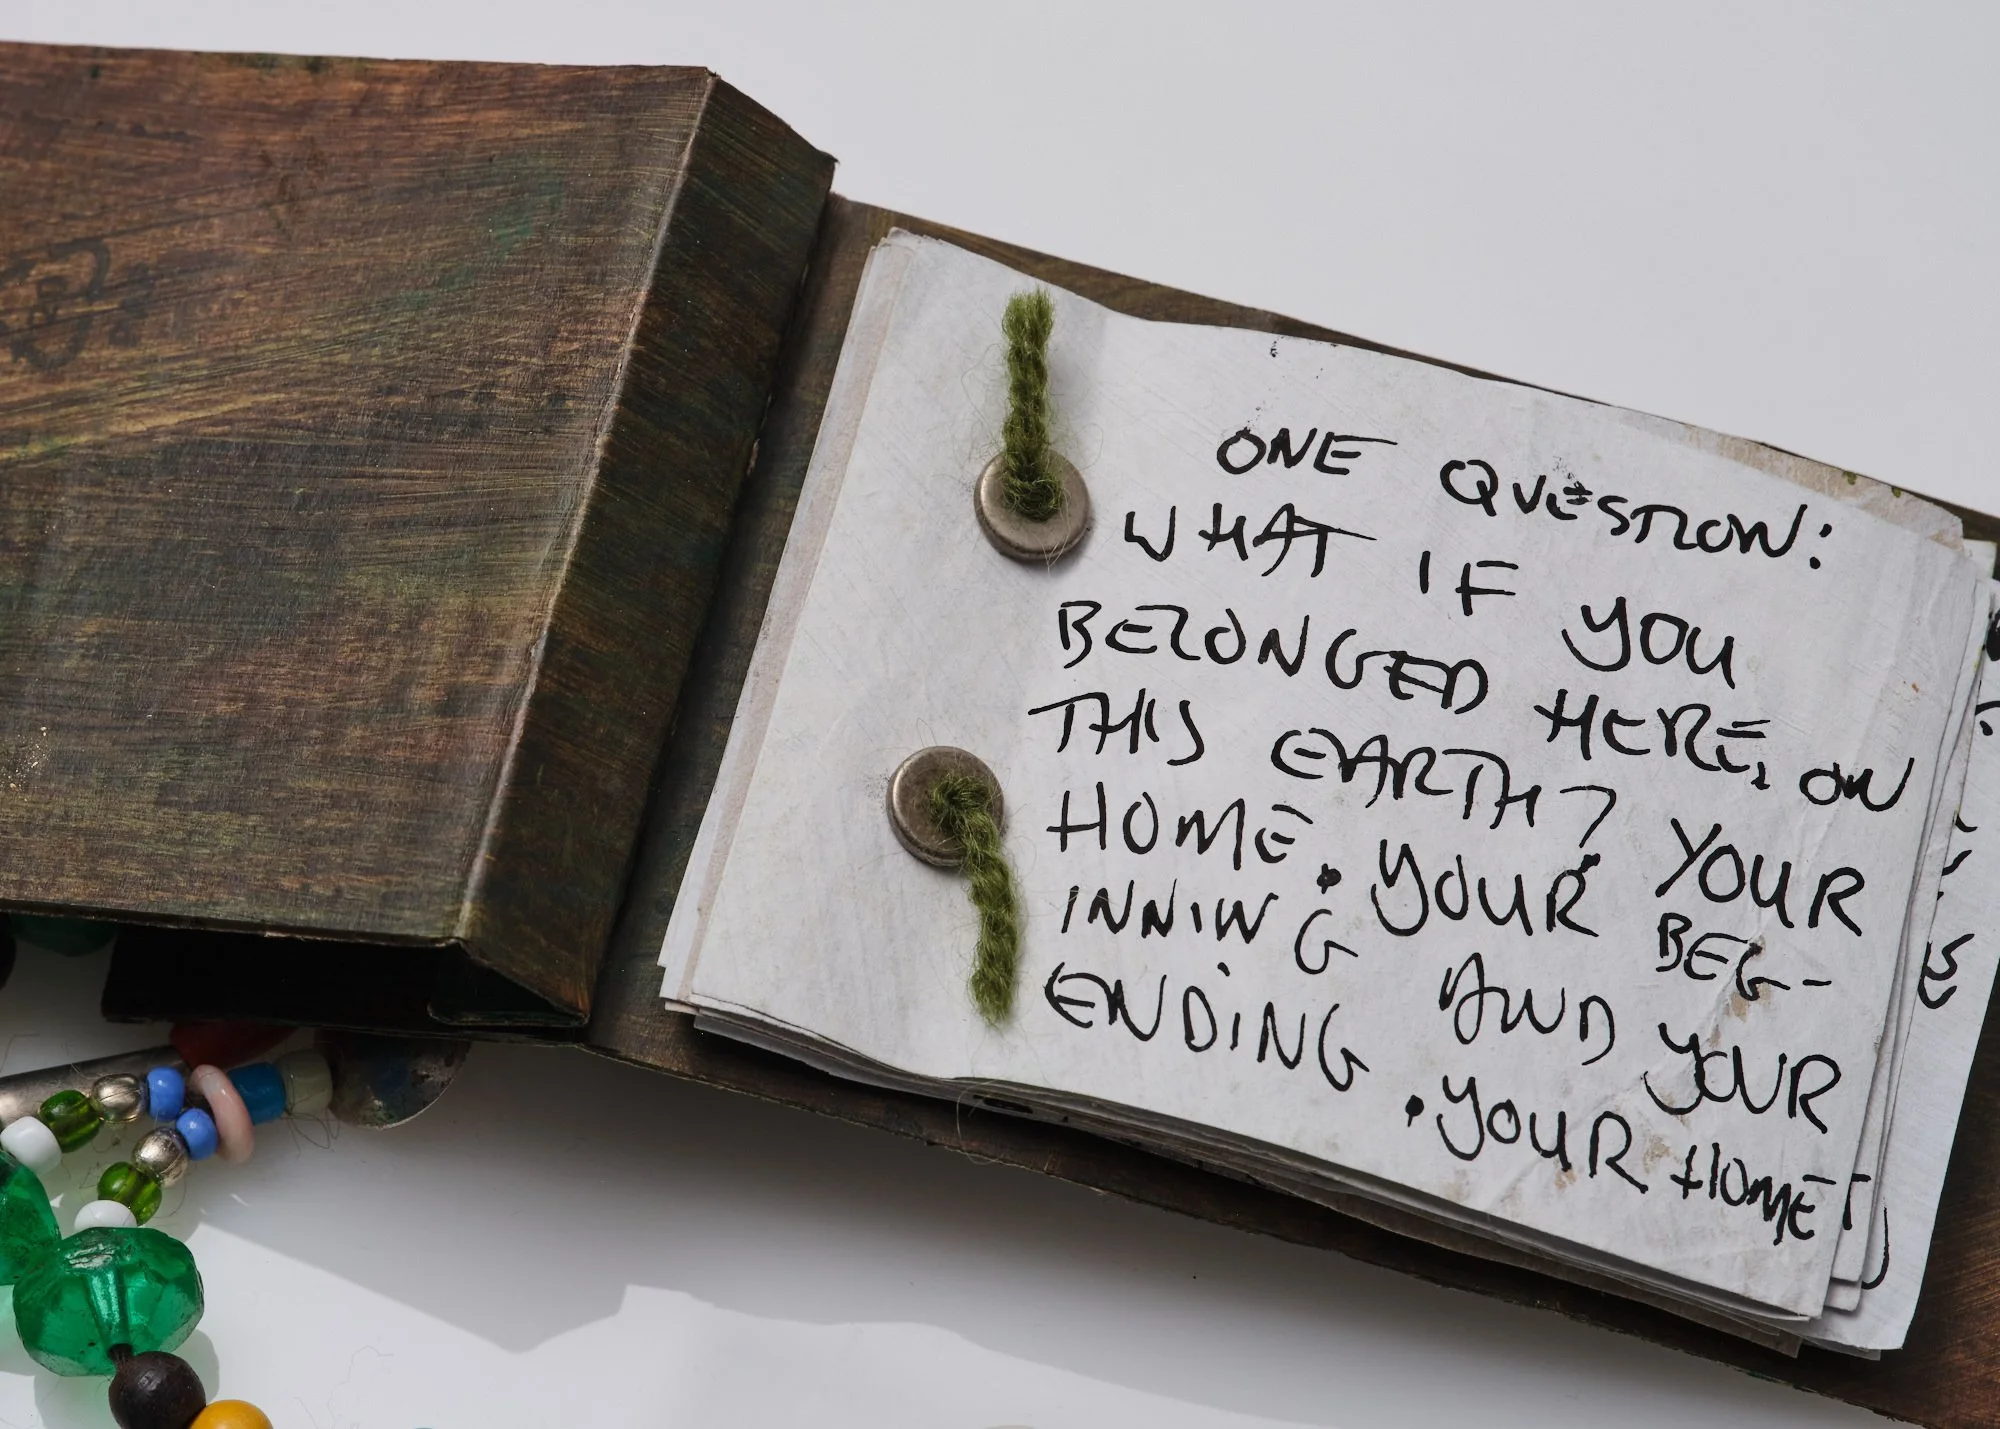 ONE QUESTION:
WHAT IF YOU
BELONGED HERE, ON
THIS EARTH? YOUR
HOME. YOUR BEG-
INNING AND YOUR
ENDING. YOUR HOME